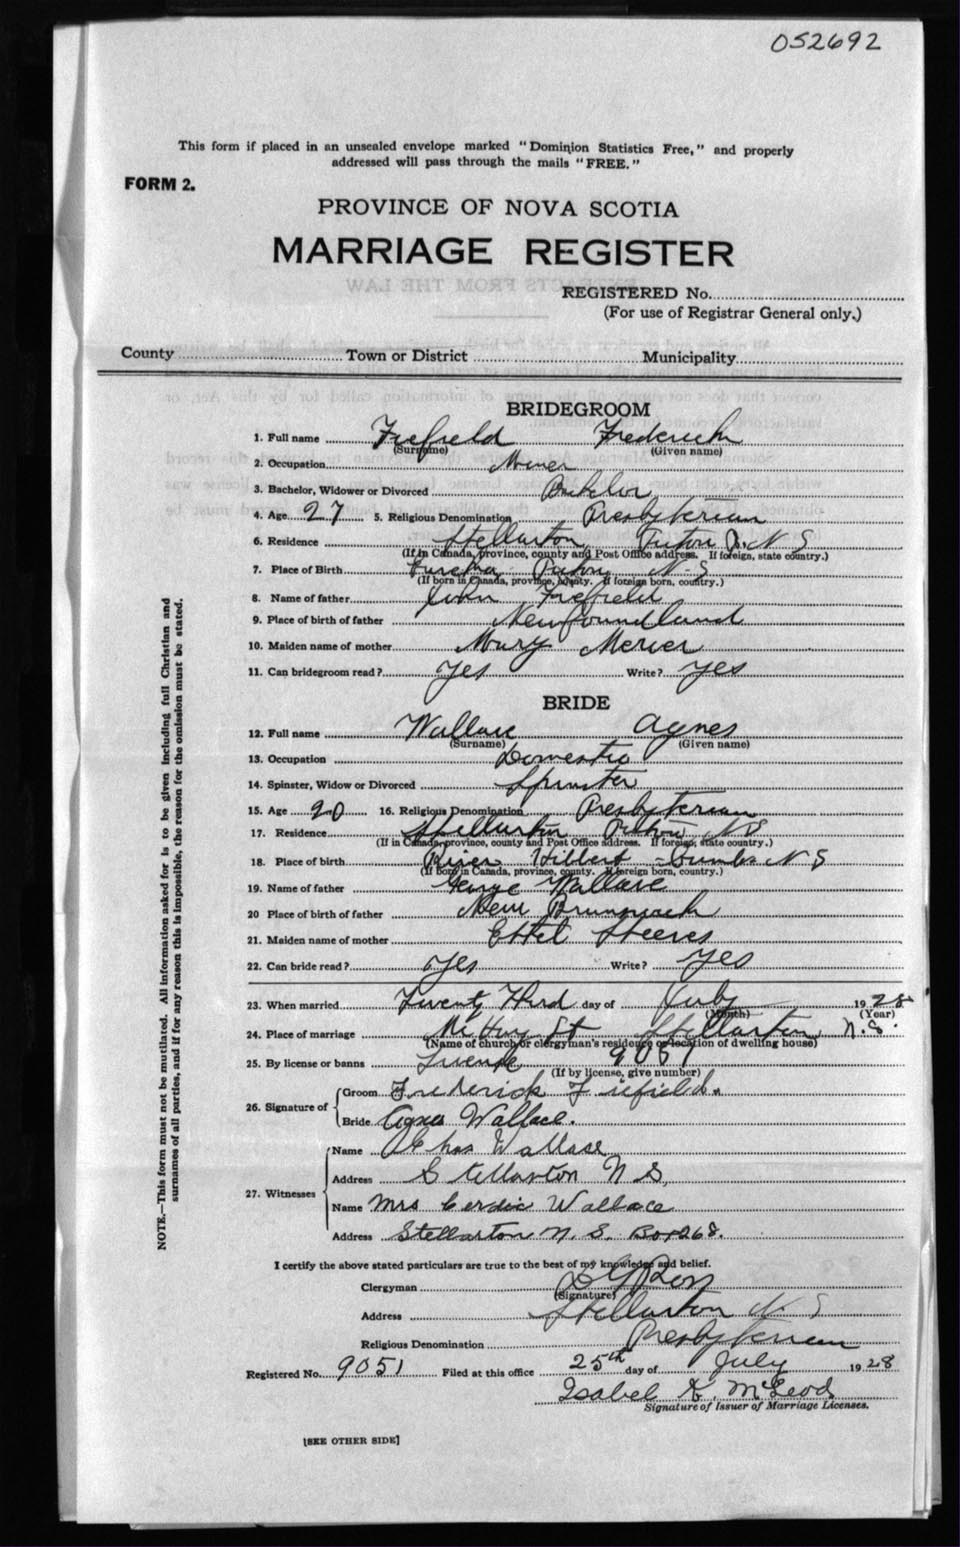 052692
This form if placed in an unsealed envelope marked "Dominion Statistics Free," and properly
addressed will pass through the mails "FREE."
FORM 2.
PROVINCE OF NOVA SCOTIA
MARRIAGE REGISTER
REGISTERED No.
(For use of Registrar General only.)
County Town or District Municipality
BRIDEGROOM
1. Full name Fiefield Frederick
(Surname) (Given name)
2. Occupation Miner
3. Bachelor, Widower or Divorced Bachelor
4. Age 27 5. Religious Denomination Presbyterian
6. Residence Stellarton Pictou N S
(If in Canada, province, county and Post Office address. If foreign, state country.)
7. Place of Birth Eureka Pictou N-S
(If born in Canada, province, county. If foreign born, country.)
8. Name of father John Fiefield
9. Place of birth of father Newfoundland
10. Maiden name of mother Mary Mercer
11. Can bridegroom read? Yes Write? Yes
BRIDE
12. Full name Wallace Agnes
(Surname) (Given name)
13. Occupation Domestic
14. Spinster, Widow or Divorced Spinster
15. Age 20 16. Religious Denomination Presbyterian
17. Residence Stellarton Pictou N S
(If in Canada, province, county and Post Office address. If foreign, state country.)
18. Place of birth River Hibbert Cumb. N S
(If born in Canada, province, county. If foreign born, country.)
19. Name of father George Wallace
20 Place of birth of father New Brunswick
21. Maiden name of mother Ethel Steeves
22. Can bride read? Yes Write? Yes
23. When married Twenty Third day of July 1928
(Month) (Year)
24. Place of marriage St Stellarton N.S.
(Name of church or clergyman's residence or location of dwelling house)
25. By license or banns License 9051
(If by license, give number)
26. Signature of Groom Frederick Fiefield.
Bride Agnes Wallace.
27. Witnesses
Name Chas Wallace
Address Stellarton N S.
Name Mrs Cerdic Wallace
Address Stellarton N. S. Box 268.
I certify the above stated particulars are true to the best of my knowledge and belief.
Clergyman Ross
(Signature)
Address Stellarton N S
Religious Denomination Presbyterian
Registered No. 9051 Filed at this office 25th day of July 1928
Isabel K. McLeod
Signature of Issuer of Marriage Licenses.
[SEE OTHER SIDE]
NOTE.—This form must not be mutilated. All information asked for is to be given including full Christian and
surnames of all parties, and if for any reason this is impossible, the reason for the omission must be stated.